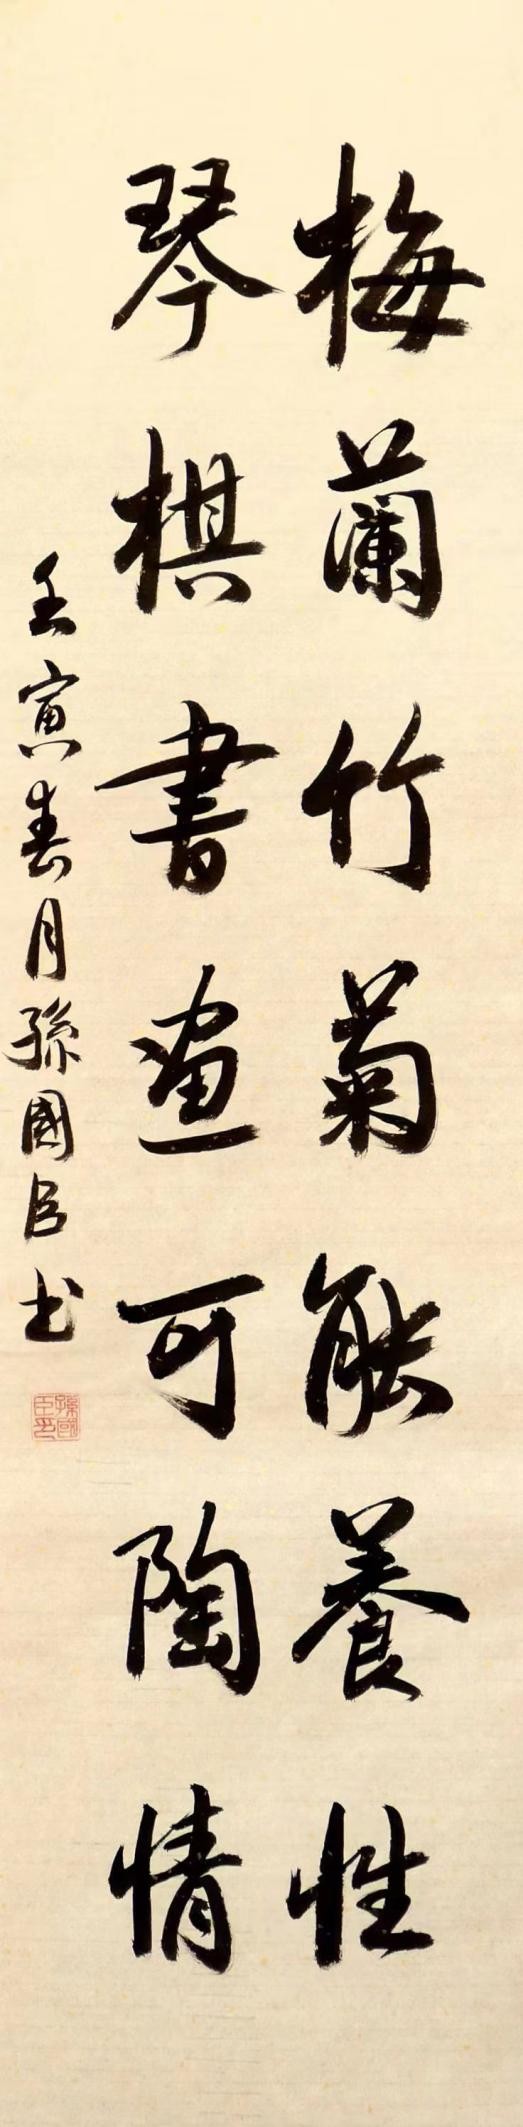 梅蘭竹菊能養性
琴棋書畫可陶情
壬寅春月孫國臣書
孫國臣印